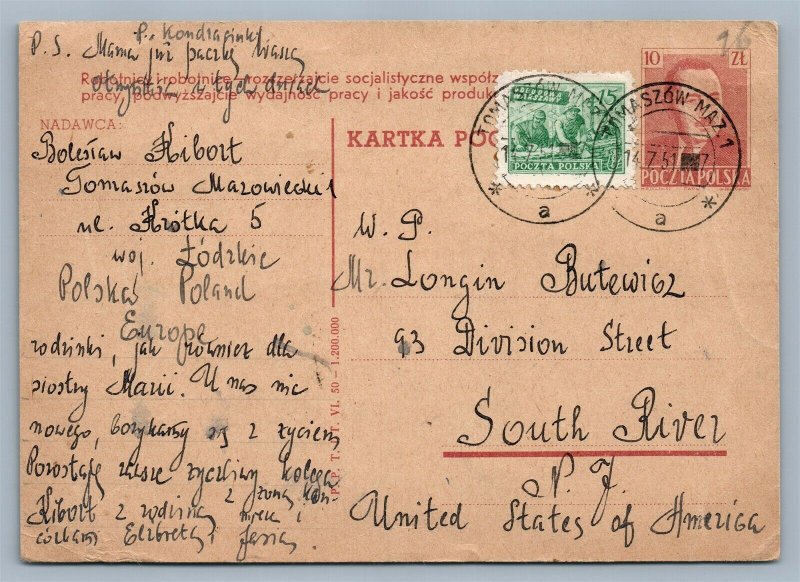 P. Kondraginki
P.S. Mama już paczkę Waszą
otrzymała w tych dniach
Robotnicy i robotnice, rozszerzajcie socjalistyczne współz
pracy, podwyższajcie wydajność pracy i jakość produk
NADAWCA:
Bolesław Kibort
Tomaszów Mazowiecki 1
ul. Krótka 5
woj. Łódzkie
Polska Poland
Europe
rodzinki, jak również dla
siostry Marii. U nas nic
nowego, borykamy się z życiem
Pozostaję zawsze życzliwy kolega
Kibort z rodziną z żoną
córkami Elżbietą i
P.P.T. i T. VI. 50 - 1.200.000
KARTKA POC
15
POCZTA POLSKA
10 ZŁ
POCZTA POLSKA
TOMASZÓW MAZ. 1
14.7.51
a
TOMASZÓW MAZ. 1
a
16
W. P.
Mr. Longin Butewicz
93 Division Street
South River
N. J.
United States of America